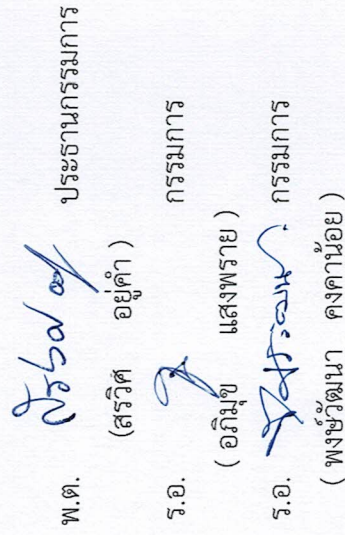 พ.ต. ประธานกรรมการ
(สรวิศ อยู่คำ )
ร.อ. กรรมการ
( อภิมุข แสงพราย )
ร.อ. กรรมการ
( พงษ์วัฒนา คงคาน้อย )